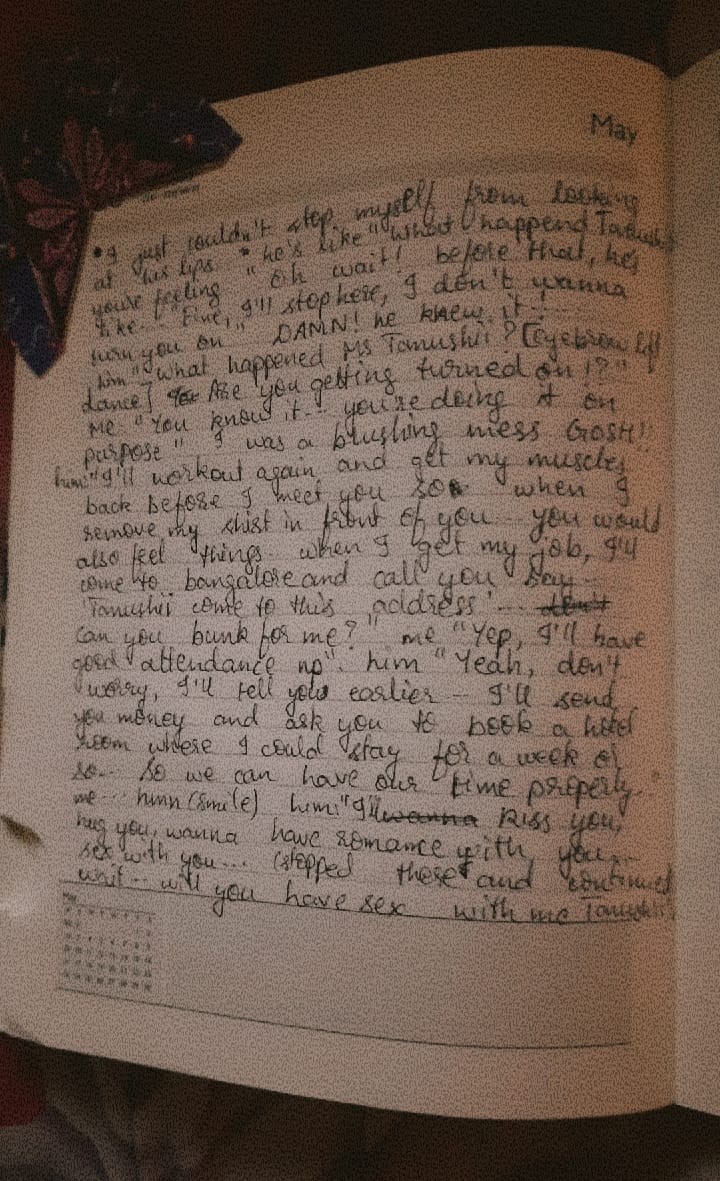 May
• I just couldn't stop myself from looking
at his lips • he's like "what happend Tanushii
you're feeling " "oh wait! before that, he's
like-- "Fine, I'll stop here, I don't wanna
turn you on" DAMN! he knew it!---
him "what happened Ms Tanushii? [eyebrow lift
dance] Are you getting turned on!?"
Me "You know it-- you're doing it on
purpose" I was a blushing mess GOSH!!
him: "I'll workout again and get my muscles
back before I meet you so when I
remove my shirt in front of you-- you would
also feel things-- when I get my job, I'll
come to bangalore and call you say--
'Tanushii come to this address'--- don't
can you bunk for me?" me "Yep, I'll have
good attendance no". him "Yeah, don't
worry, I'll tell you earlier -- I'll send
you money and ask you to book a hotel
room where I could stay for a week or
so-- so we can have our time properly---
me--- hmn (smile) him: "I'll wanna kiss you,
hug you, wanna have romance with you---
sex with you--- (stopped there and continued
wait-- will you have sex with me Tanushii
May